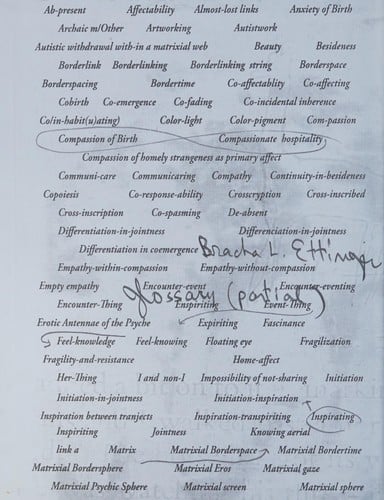 Ab-present Affectability Almost-lost links Anxiety of Birth
Archaic m/Other Artworking Autistwork
Autistic withdrawal with-in a matrixial web Beauty Besideness
Borderlink Borderlinking Borderlinking string Borderspace
Borderspacing Bordertime Co-affectablity Co-affecting
Cobirth Co-emergence Co-fading Co-incidental inherence
Co/in-habit(u)ating) Color-light Color-pigment Com-passion
Compassion of Birth Compassionate hospitality
Compassion of homely strangeness as primary affect
Communi-care Communicaring Compathy Continuity-in-besideness
Copoiesis Co-response-ability Crosscryption Cross-inscribed
Cross-inscription Co-spasming De-absent
Differentiation-in-jointness Differenciation-in-jointness
Differentiation in coemergence Bracha L. Ettinger
Empathy-within-compassion Empathy-without-compassion
Empty empathy Encounter-event Encounter-eventing
glossary (partial)
Encounter-Thing Enspiriting Event-Thing
Erotic Antennae of the Psyche Expiriting Fascinance
Feel-knowledge Feel-knowing Floating eye Fragilization
Fragility-and-resistance Home-affect
Her-Thing I and non-I Impossibility of not-sharing Initiation
Initiation-in-jointness Initiation-inspiration
Inspiration between tranjects Inspiration-transpiriting Inspirating
Inspiriting Jointness Knowing aerial
link a Matrix Matrixial Borderspace Matrixial Bordertime
Matrixial Bordersphere Matrixial Eros Matrixial gaze
Matrixial Psychic Sphere Matrixial screen Matrixial sphere